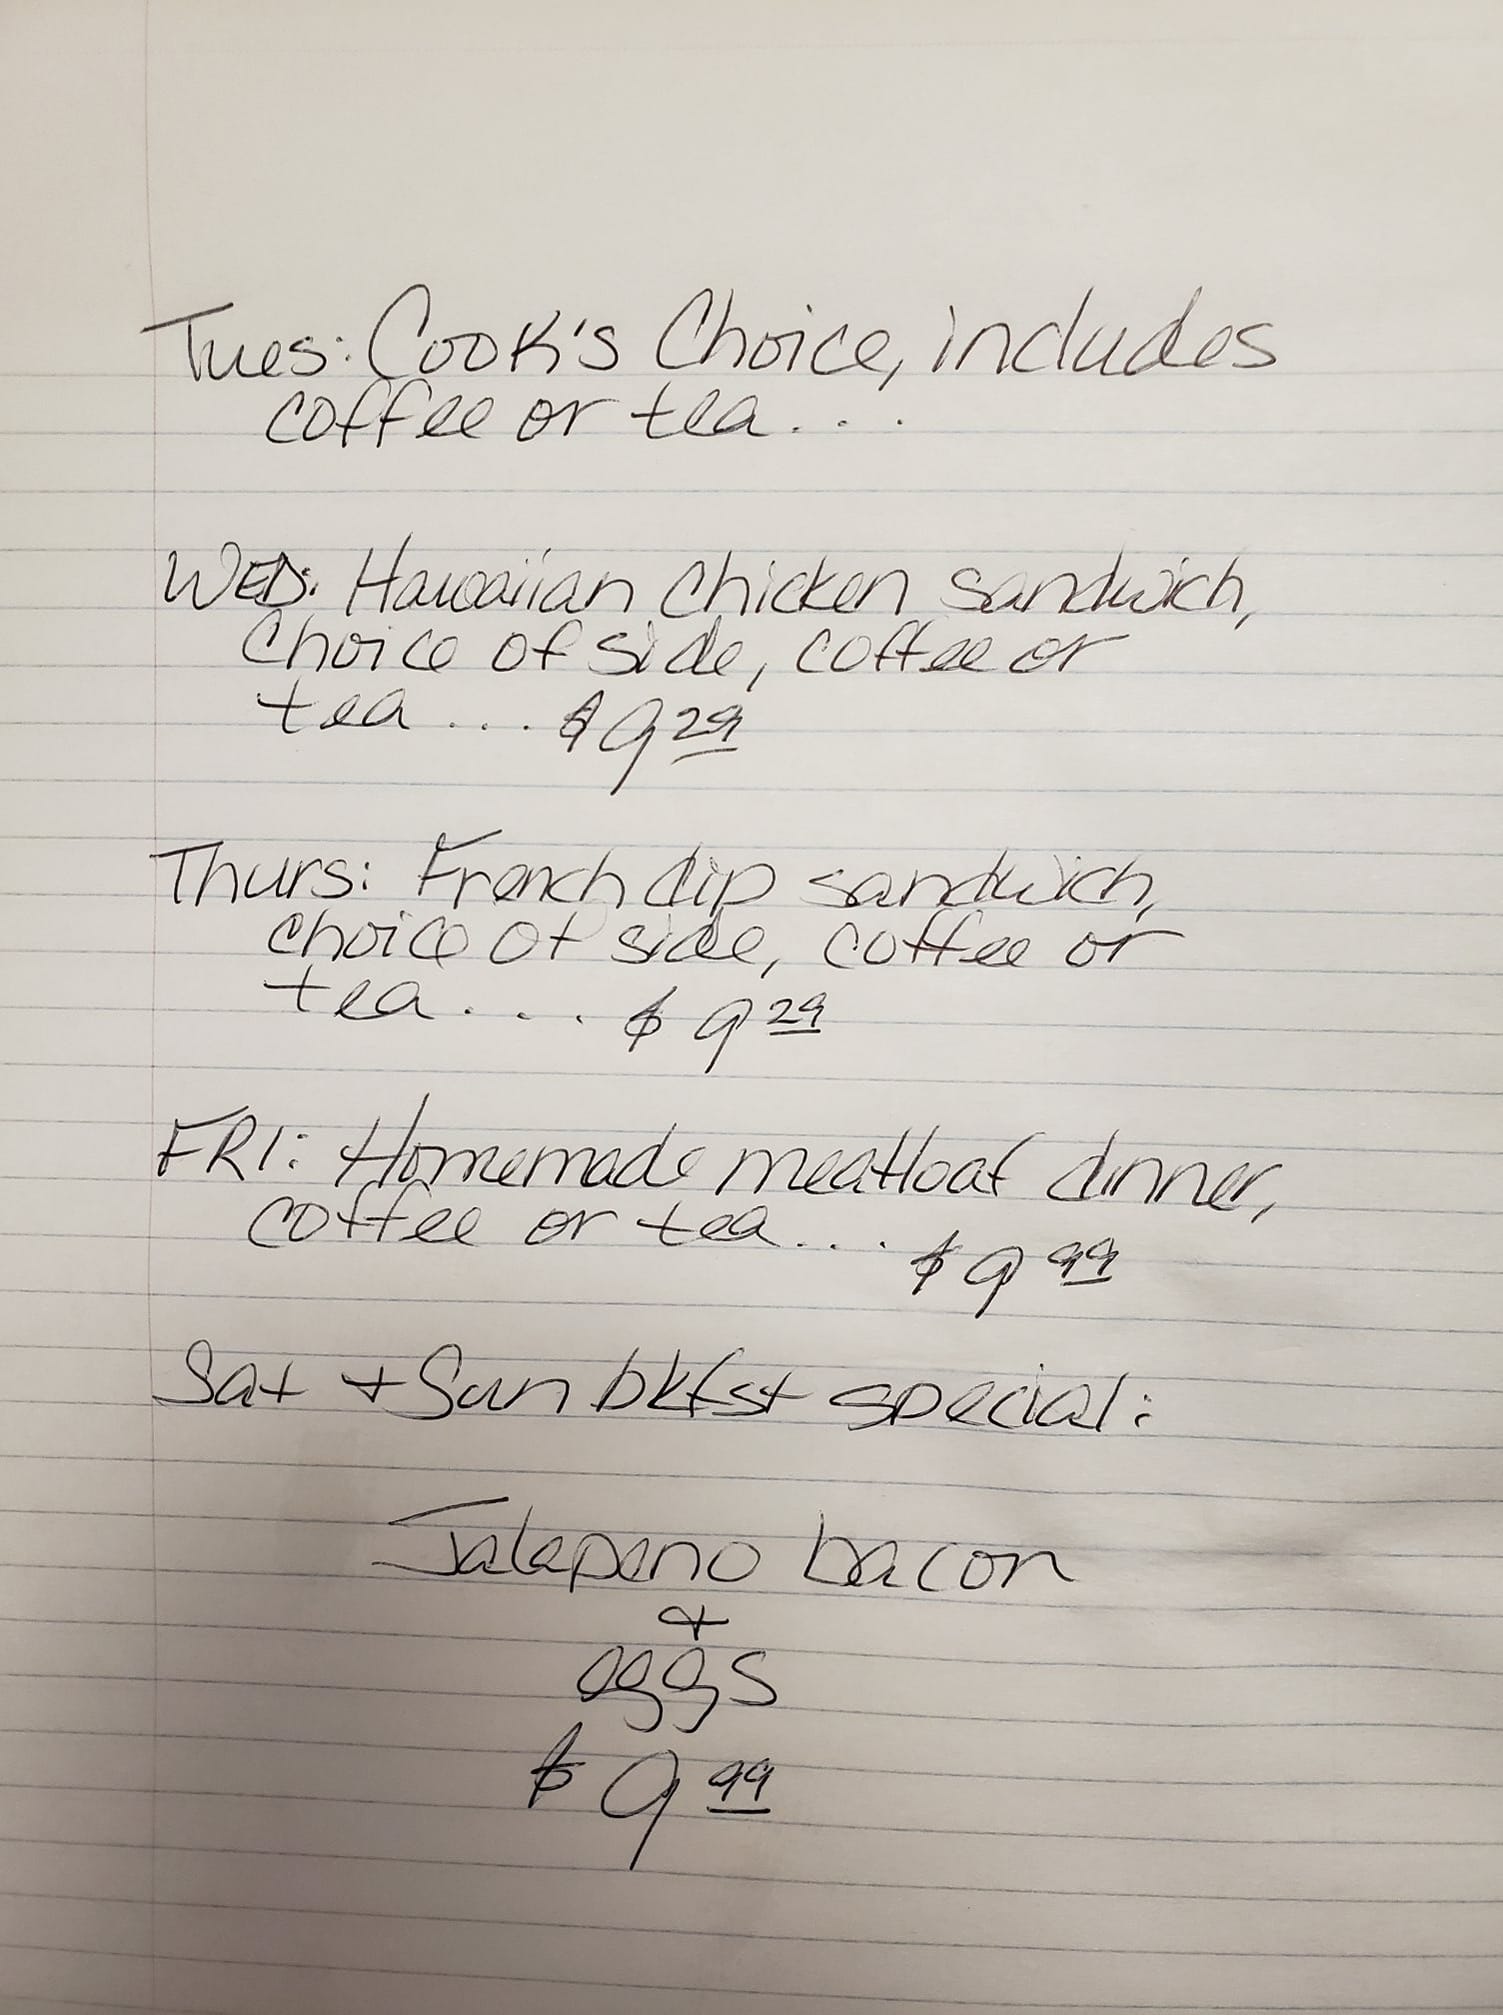 Tues: Cook's Choice, includes
coffee or tea...
WED: Hawaiian chicken sandwich,
choice of side, coffee or
tea... $9 29
Thurs: French dip sandwich,
choice of side, coffee or
tea.... $9 29
FRI: Homemade meatloaf dinner,
coffee or tea.... $9 99
Sat + Sun bkfst special:
Jalapeno bacon
+
eggs
$9 99